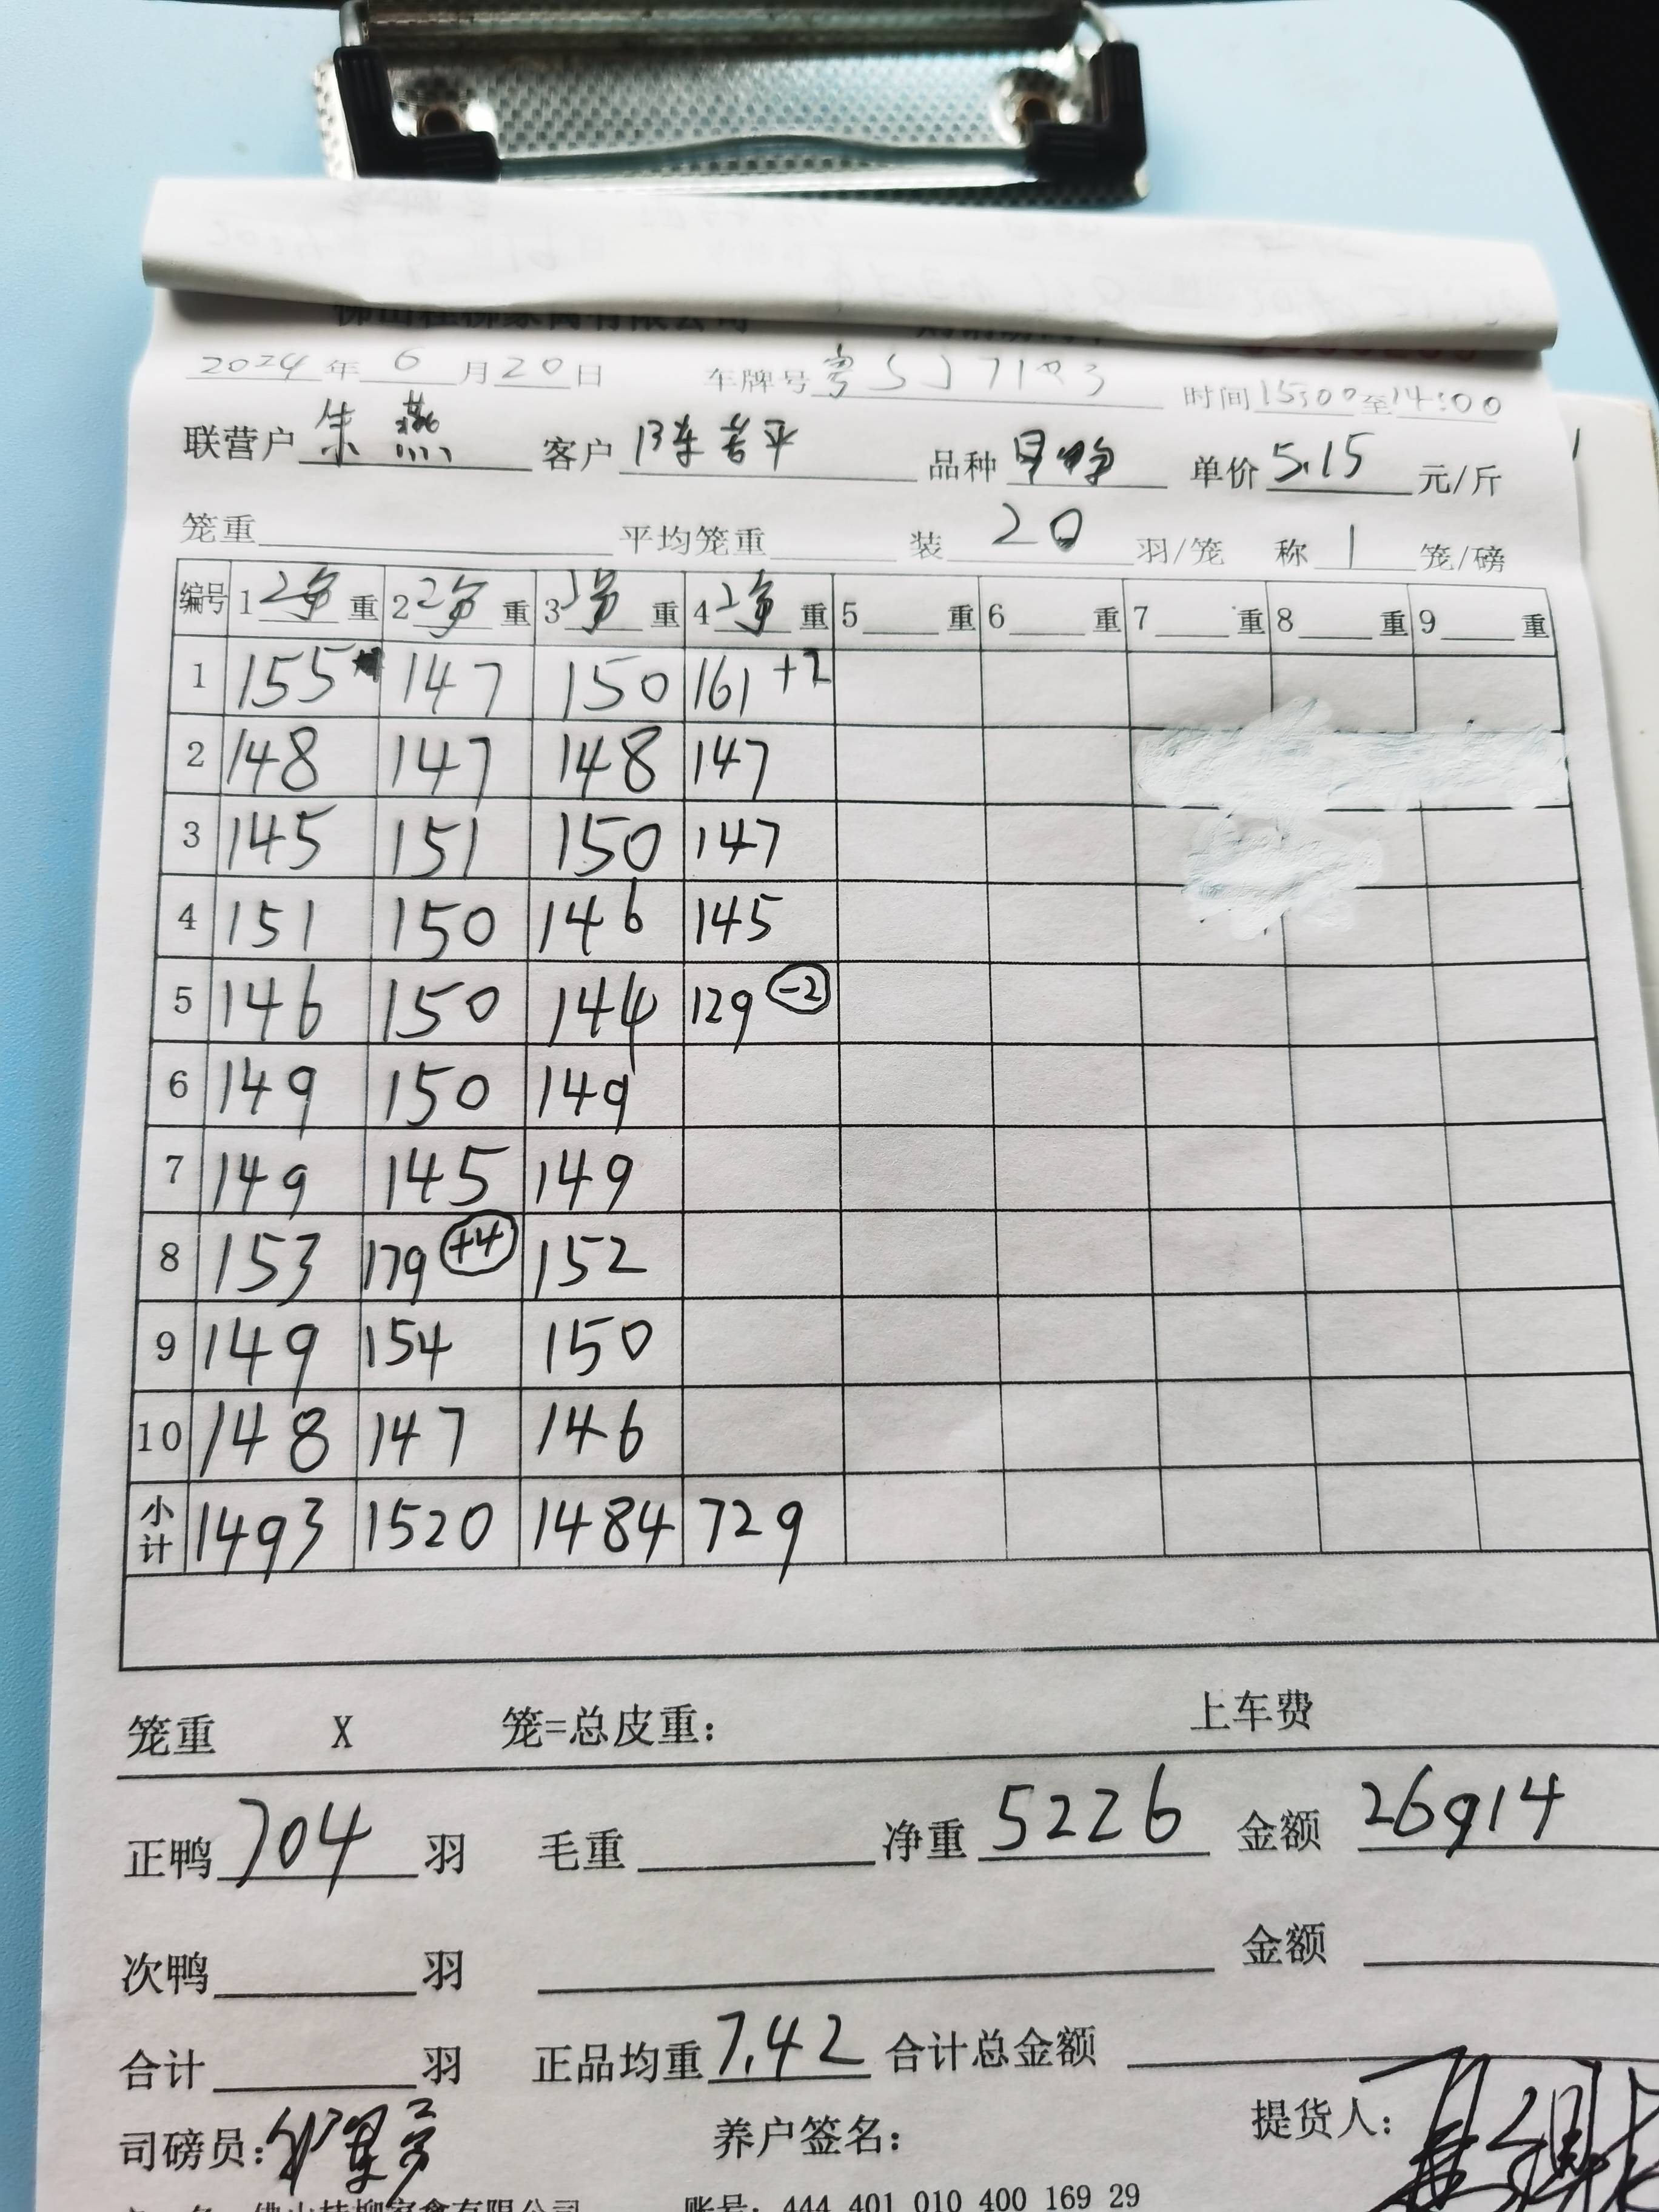 2024 年 6 月 20 日 车牌号 粤 时间 15:00 至 14:00
联营户 朱燕 客户 陈若平 品种 单价 5.15 元/斤
笼重 平均笼重 装 20 羽/笼 称 1 笼/磅
编号 1 净 重 2 净 重 3 重 4 净 重 5 重 6 重 7 重 8 重 9 重
1 155 147 150 161 +2
2 148 147 148 147
3 145 151 150 147
4 151 150 146 145
5 146 150 144 129 -2
6 149 150 149
7 149 145 149
8 153 179 +4 152
9 149 154 150
10 148 147 146
小计 1493 1520 1484 729
笼重 X 笼=总皮重: 上车费
正鸭 704 羽 毛重 净重 5226 金额 26914
次鸭 羽 金额
合计 羽 正品均重 7.42 合计总金额
司磅员: 养户签名: 提货人:
佛山桂柳家禽有限公司 账号: 444 401 010 400 169 29